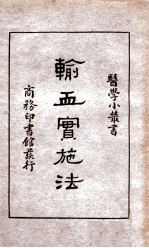 醫學小叢書
輸血實施法
商務印書館發行